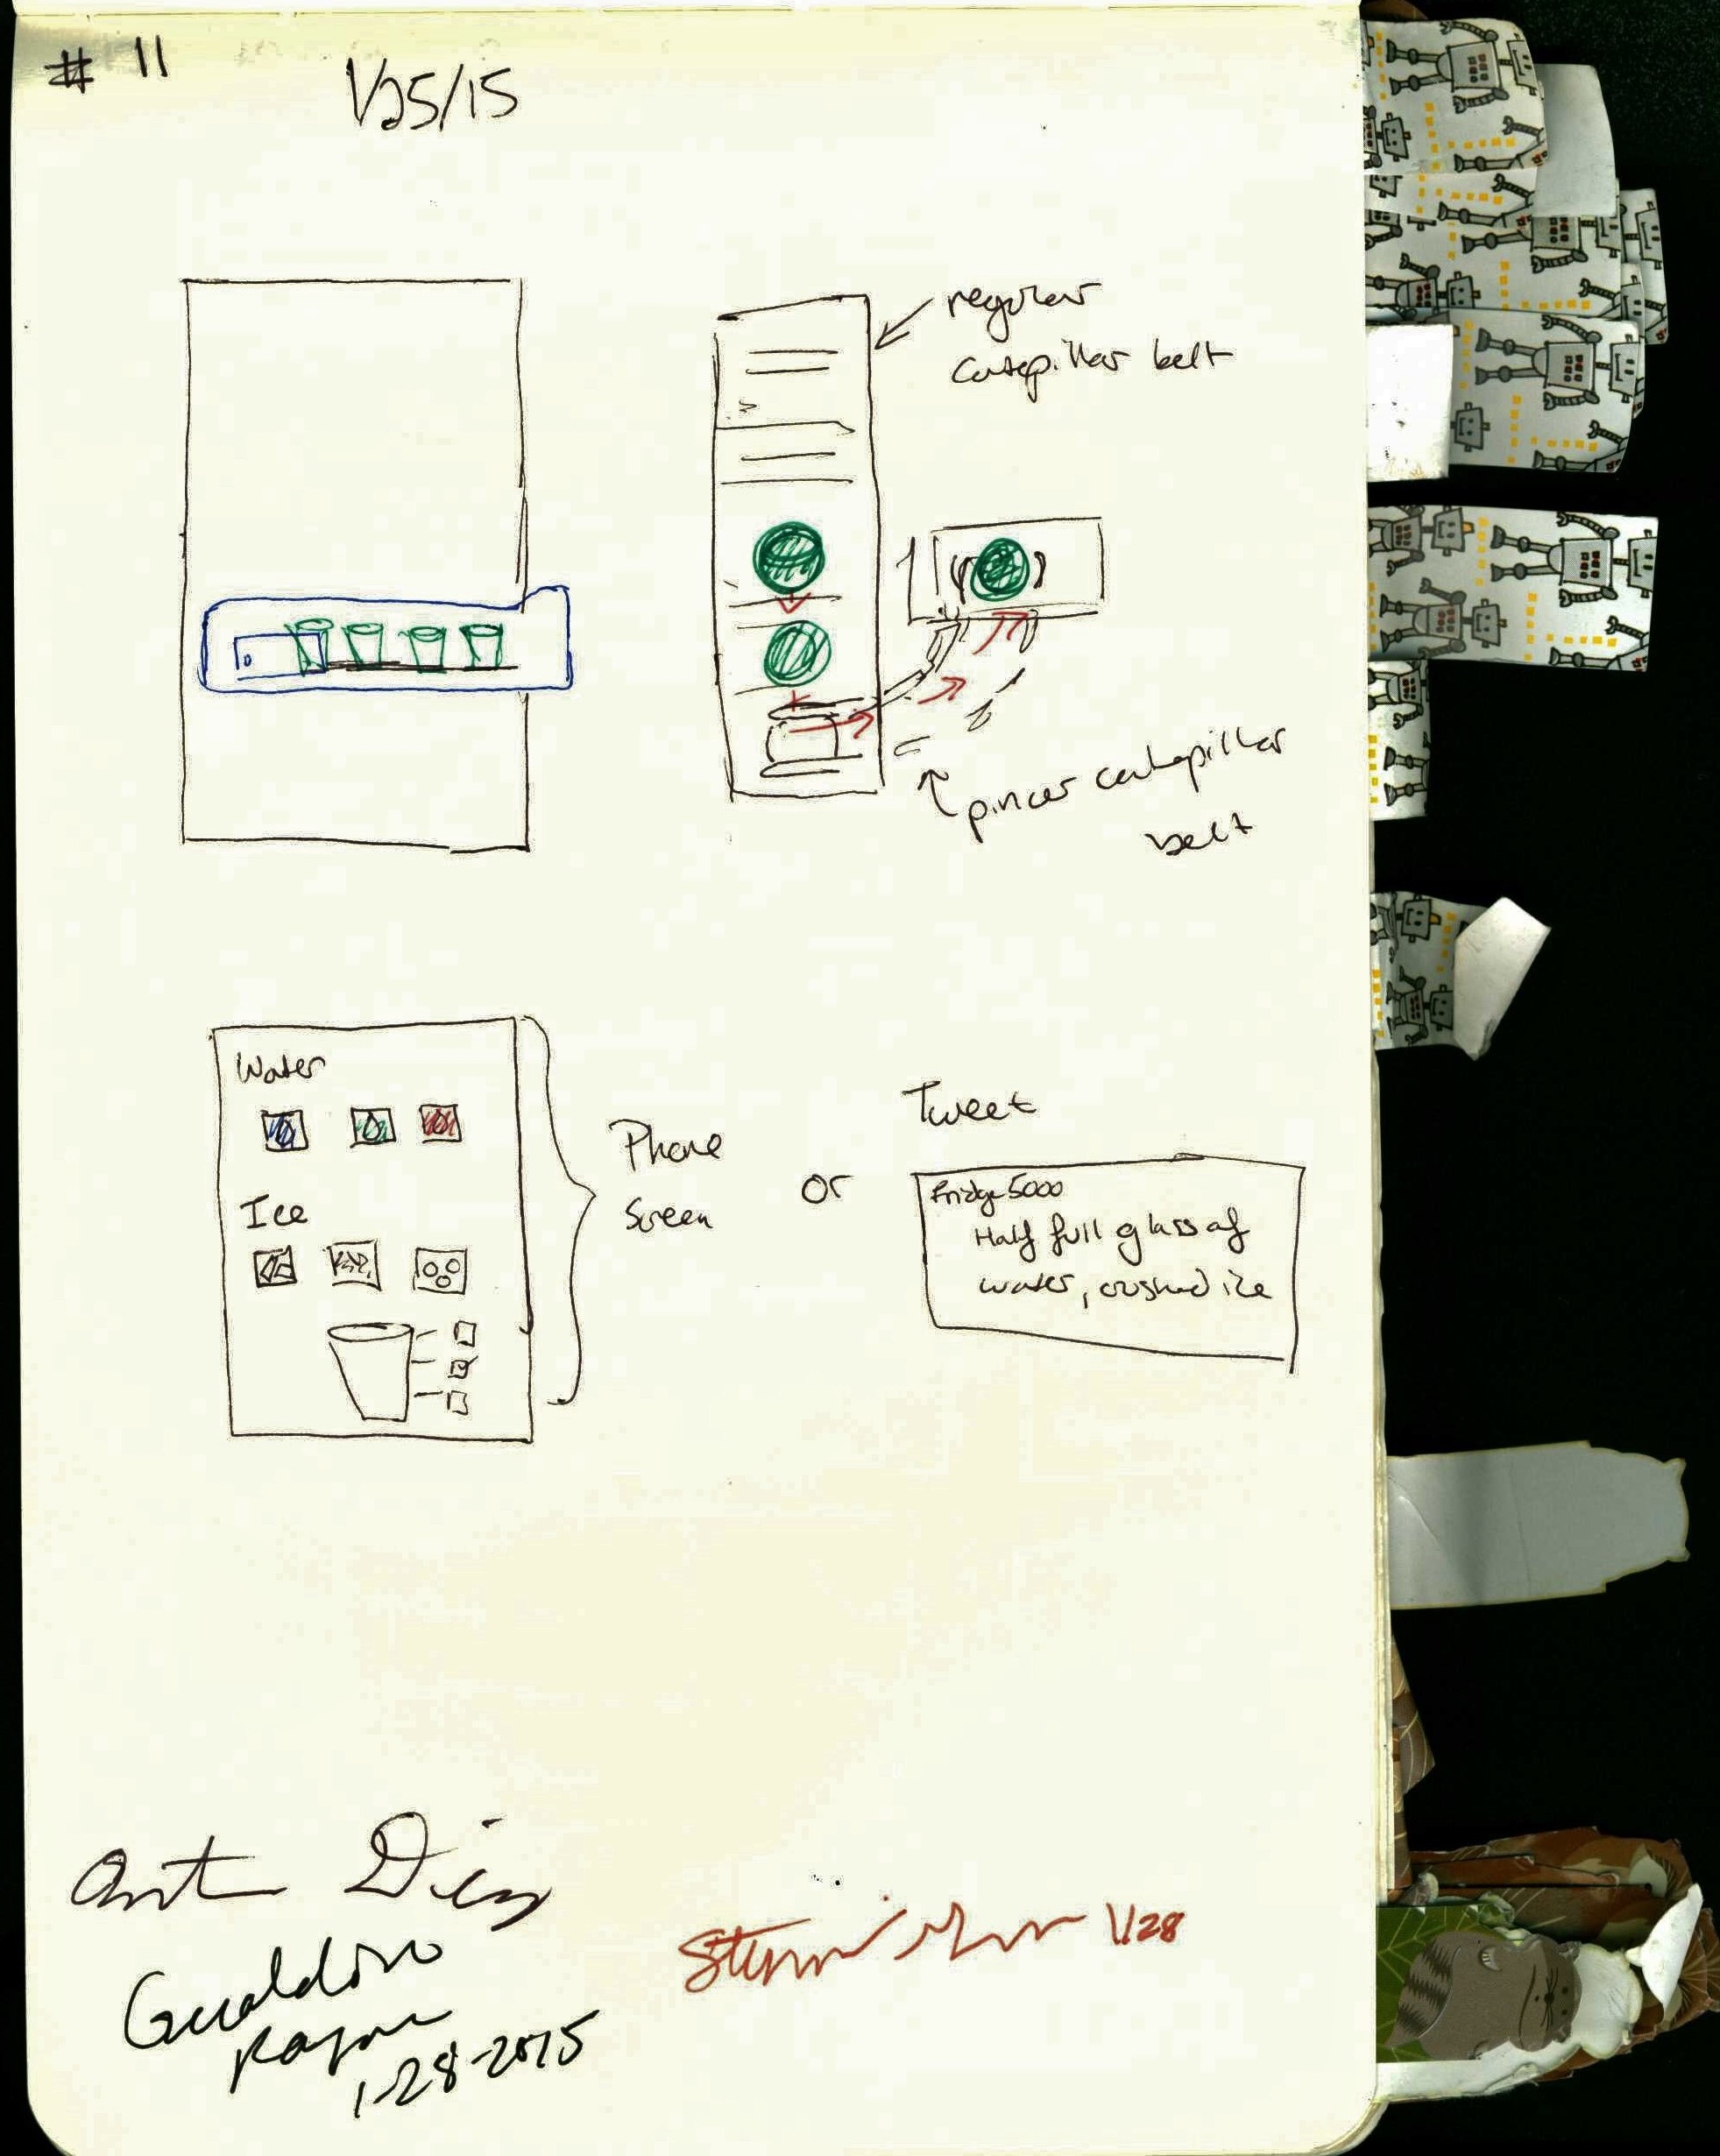 # 11
1/25/15
regular
catepillar belt
pincer catepillar
belt
Water
Ice
Phone
Screen
or
Tweet
Fridge5000
Half full glass of
water, crushed ice
Geraldine
1-28-2015
1/28